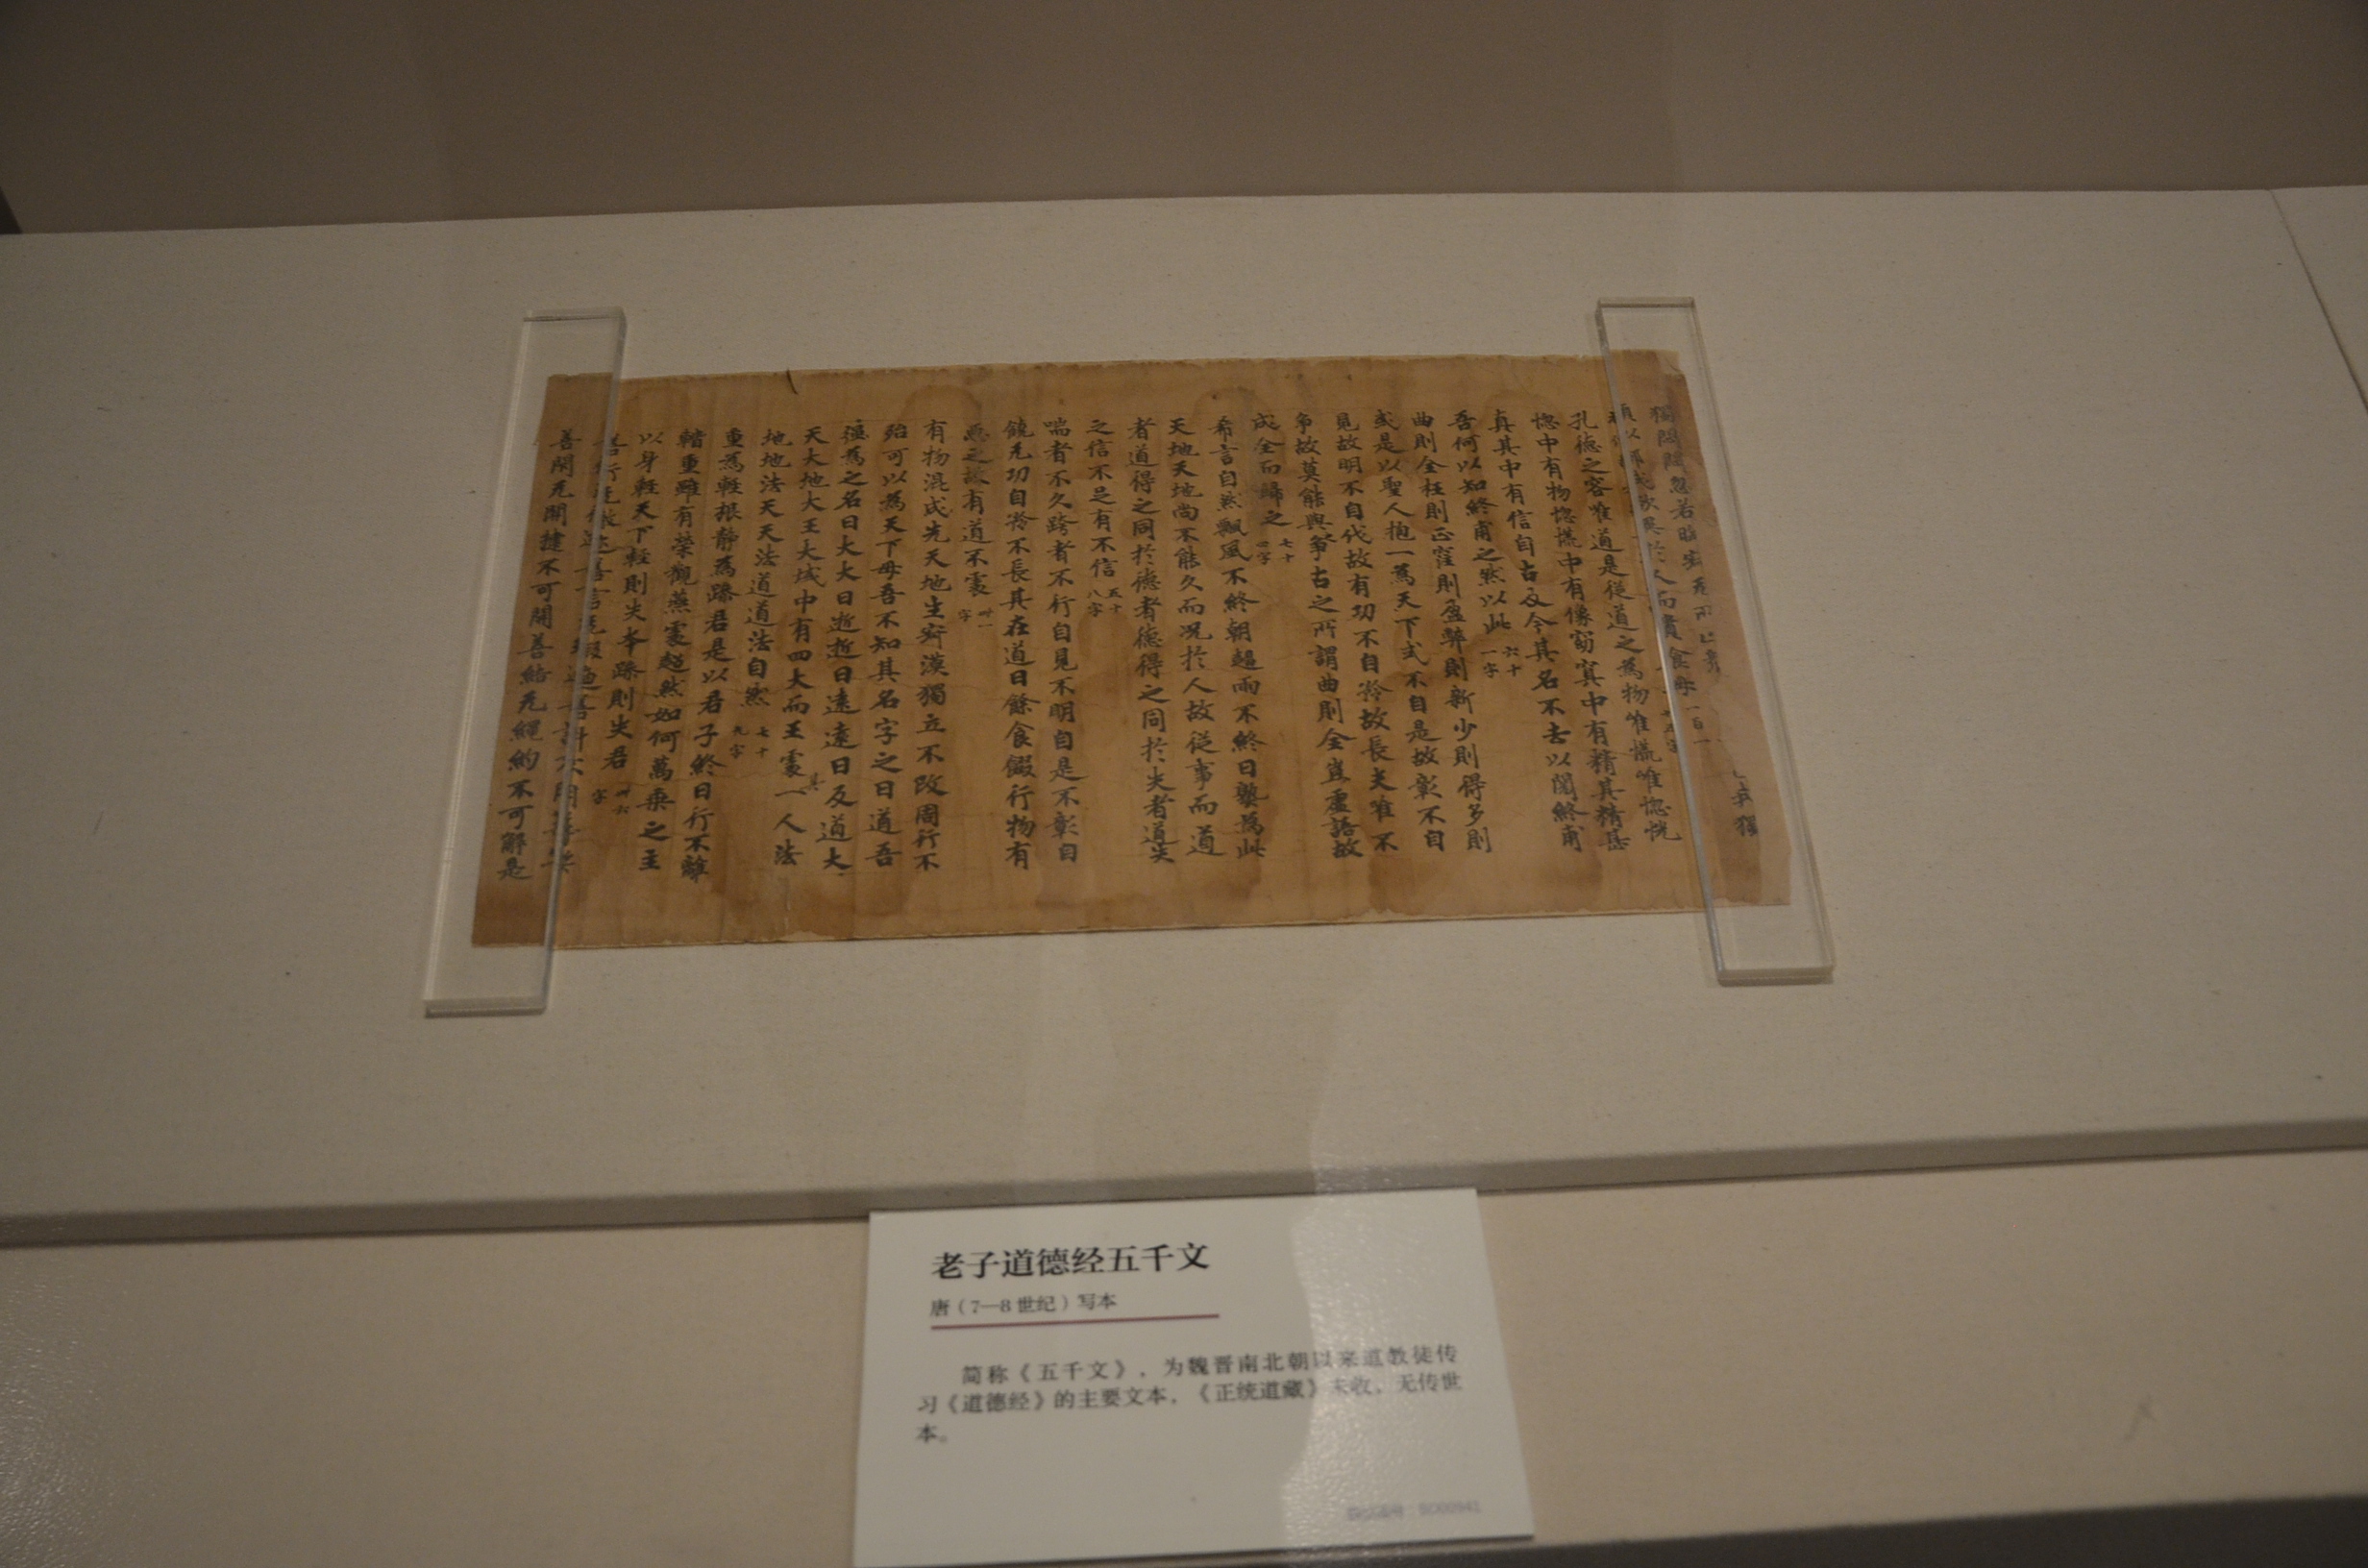 獨悶悶忽若晦寂无所止
我獨
頑以鄙我欲異於人而貴食母
孔德之容唯道是従道之為物唯慌唯惚慌
惚中有物惚慌中有像窈冥中有精其精甚
真其中有信自古及今其名不去以閱終甫
吾何以知終甫之然以此 六十一字
曲則全枉則正窪則盈弊則新少則得多則
或是以聖人抱一為天下式不自是故彰不自
見故明不自伐故有功不自矜故長夫唯不
爭故莫能與爭古之所謂曲則全豈虛語故
成全而歸之 七十四字
希言自然飄風不終朝趍雨不終日孰為此
天地天地尚不能久而況於人故従事而道
者道得之同於德者德得之同於失者道失
之信不足有不信 五十八字
喘者不久跨者不行自見不明自是不彰自
饒无功自矜不長其在道曰餘食餟行物有
惡之故有道不處 卌一字
有物混成先天地生寂漠獨立不改周行不
殆可以為天下母吾不知其名字之曰道吾
強為之名曰大大曰逝逝曰遠遠曰反道大
天大地大王大域中有四大而王處一人法
地地法天天法道道法自然 七十九字
重為輕根静為躁君是以君子終日行不離
輜重雖有榮觀燕處超然如何萬乗之主
以身輕天下輕則失本躁則失君 卌六字
善行无
善閇无關揵不可開善結无繩約不可解是
老子道德经五千文
唐（7—8世纪）写本
简称《五千文》，为魏晋南北朝以来道教徒传
习《道德经》的主要文本，《正统道藏》未收，无传世
本。